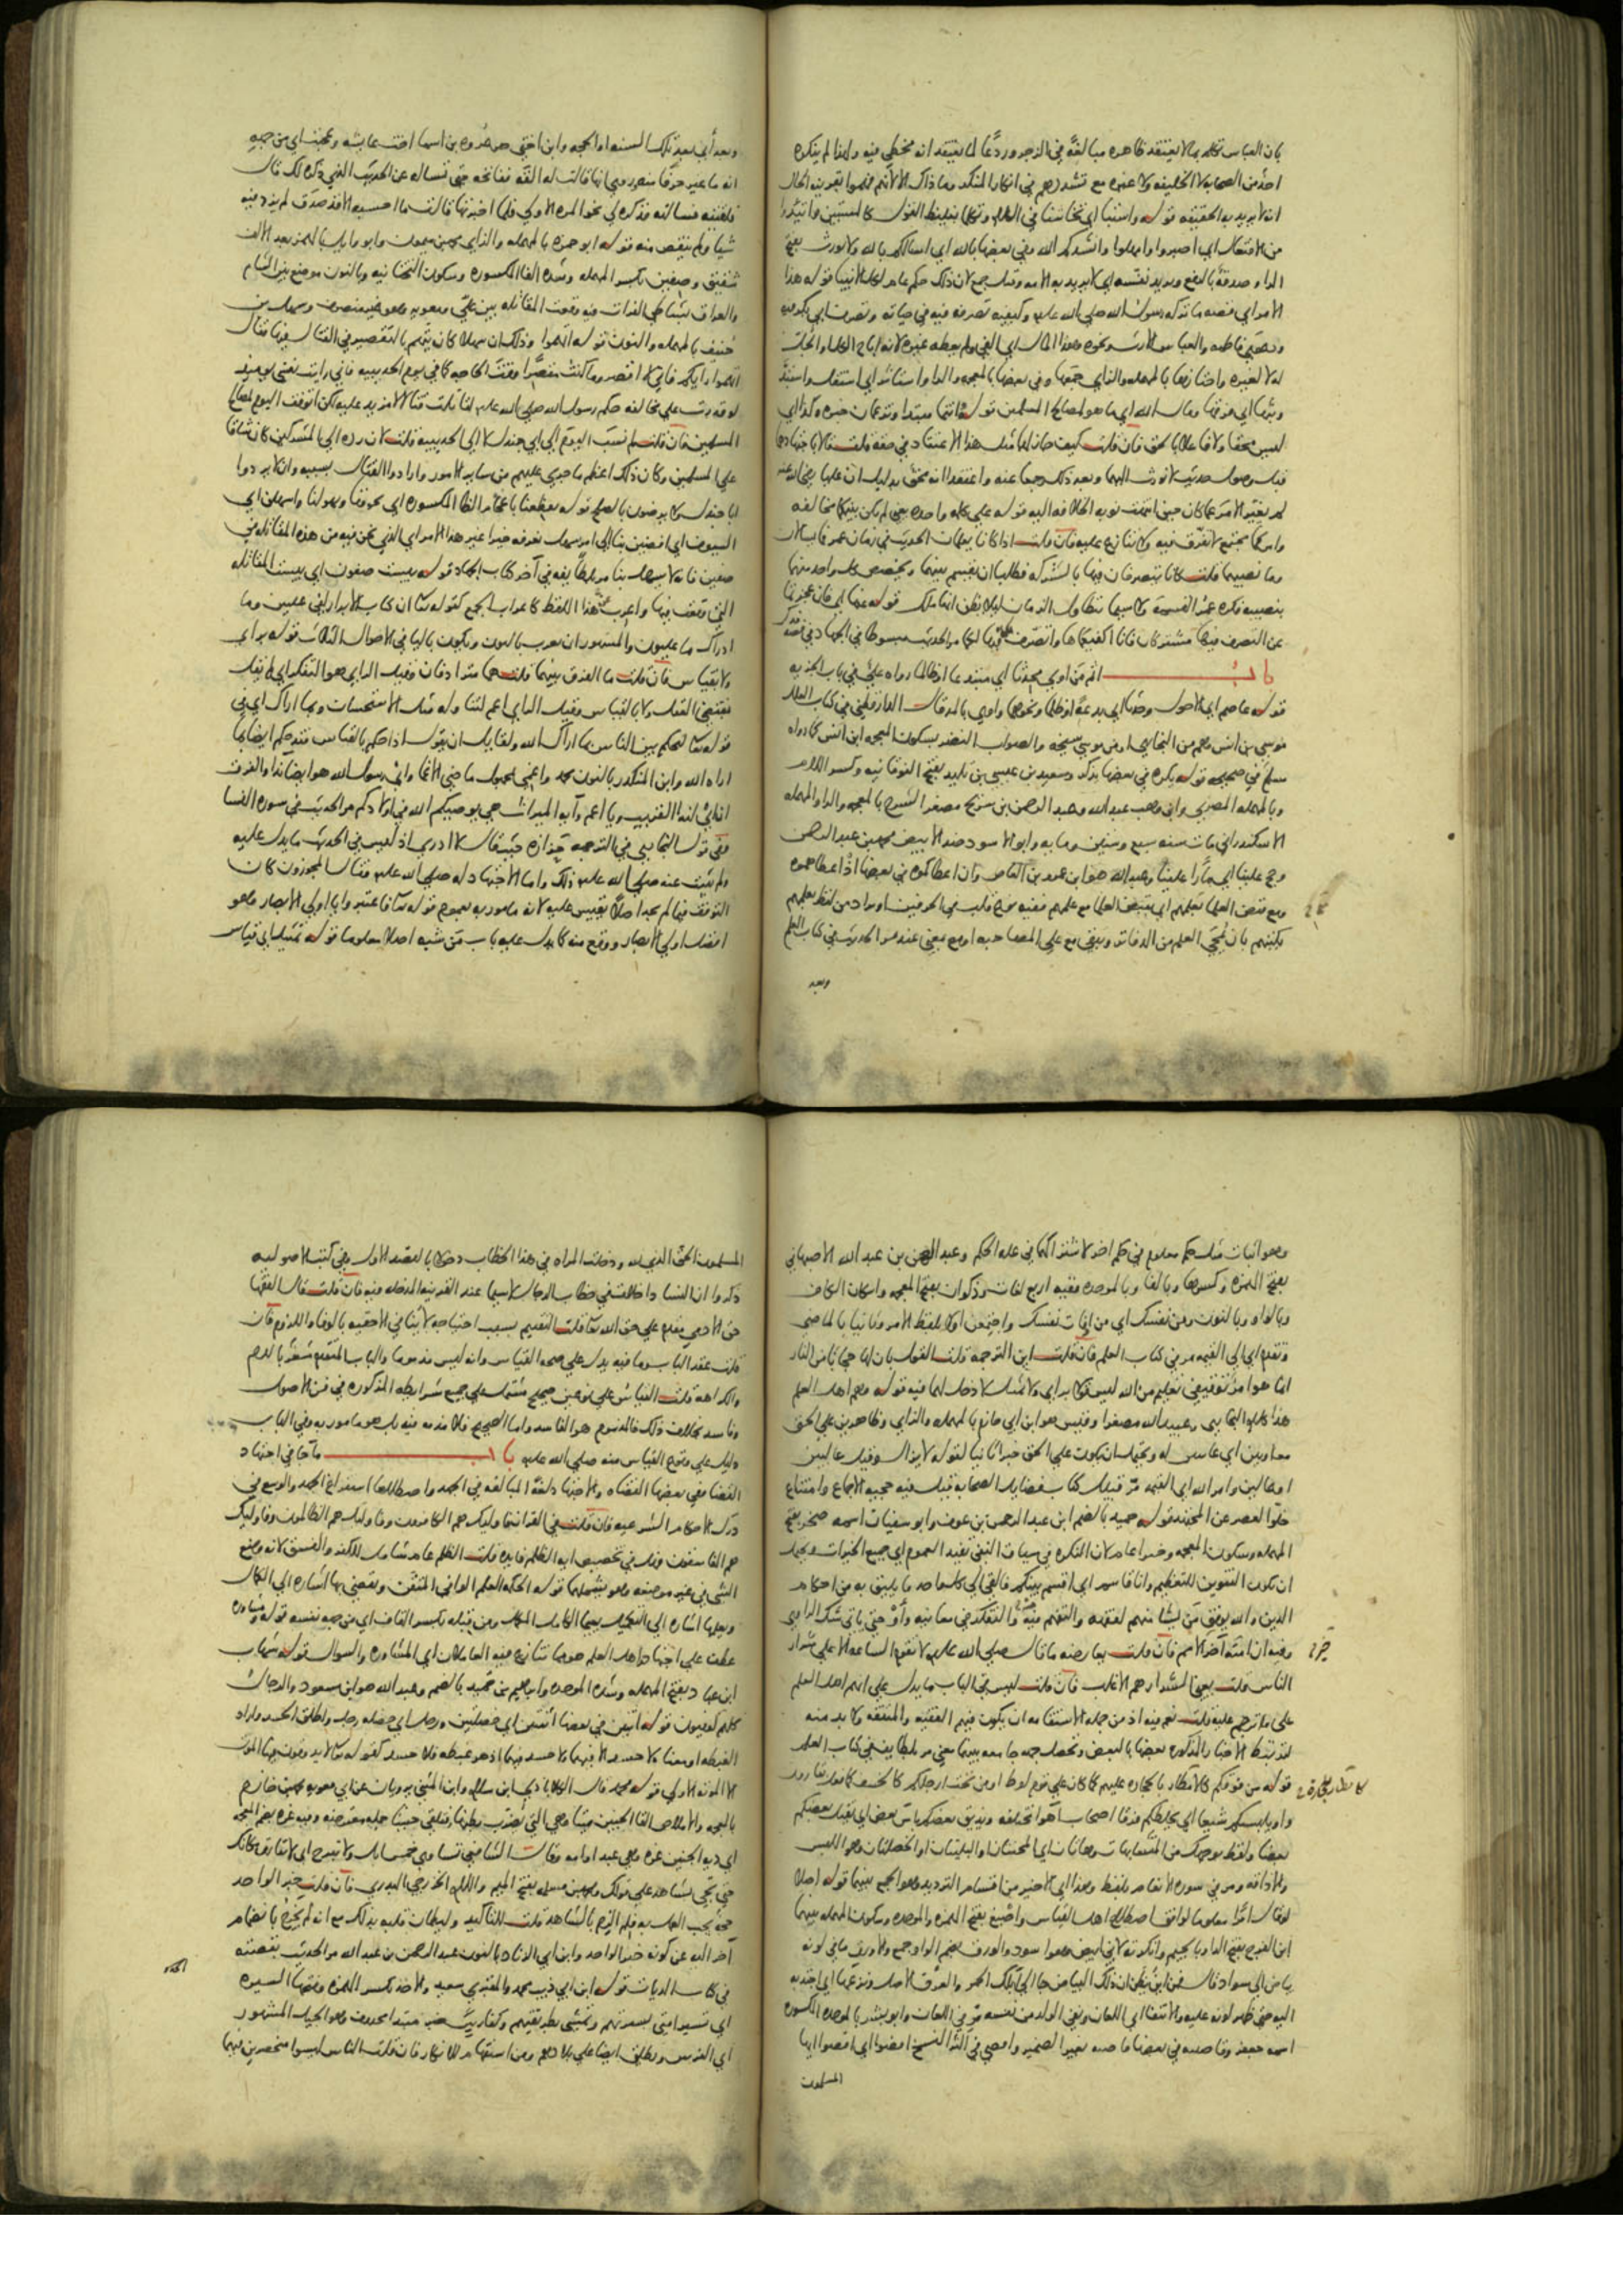 بان العباس تكلم بما لا يعتقد ظاهره مبالغة في الزجر وردعا لما يعتقد انه مخطي فيه ولهذا لم ينكره
احد من الصحابة لا الخليفه ولا غيره مع تشددهم في انكار المنكر وما ذاك الا لانهم فهموا بقرينه الحال
انه لا يريد به الحقيقه قوله واستبا اي تخاشنا في الكلام وتكلما بغليظ القول كالمستبين واتئدوا
من الافتعال اي اصبروا وامهلوا وانشدكم الله وفي بعضها بالله اي اسالكم بالله ولا نورث بفتح
الرا وصدقة بالرفع ويريد نفسه اي لا يريد به الامه وقيل جمع لان ذلك حكم عام لكل الانبيا قوله هذا
الامر اي قصه ما تركه رسول الله صلى الله عليه وكيفيه تصرفه فيه في حياته وتصرف ابي بكر فيه
ودعوي فاطمه والعباس الارث ونحوه وهذا المال اي الفي ولم يعطه غيره لانه اباح الكل
له لا لغيره واحتازها بالمهمله والزاي جمعها وفي بعضها بالمعجمه والرا واستاثر اي استقل واستبد
وبثها اي فرقها ومال الله اي ما هو لمصالح المسلمين قوله وانتما مبتدا وتزعمان خبره وكذا اي
ليس محقا ولا فاعلا بالحق فان قلت كيف جاز لهما مثل هذا الاعتقاد في حقه قلت قالاه باجتهادهما
قبل وصول حديث لا نورث اليهما وبعد ذلك رجعا عنه واعتقدا انه محق بدليل ان عليا رضي الله عنه
لم يغير الامر عما كان حين انتهت نوبه الخلافه اليه قوله على كلمه واحده يعني لم يكن بينكما مخالفه
وامركما مجتمع لا تفرق فيه ولا تنازع عليه فان قلت اذا كانا يعلمان الحديث في زمان عمر فما يسالان
وما نصيبهما قلت كانا يتصرفان فيها بالشركه فطلبا ان يقسم بينهما ويخصص كل واحد منهما
بنصيبه فكره عمر القسمه ولا سيما بتطاول الزمان ليلا يظن انها ملك قوله عنها اي فان عجزتما
عن التصرف فيها مشتركان فانا اكفيكماها واتصرف فيها لكما مر الحديث مبسوطا في الجهاد في قصه فدك
باب اثم من اوي محدثا اي مبتدعا او ظالما رواه علي في باب الجزيه
قوله عاصم اي الاحول وحدثا اي بدعة او ظلما ونحوهما واوي بالمد قال الدارقطني في كتاب العلل
موسى بن انس وهم من البخاري او من موسى شيخه والصواب النضر بسكون المعجمه ابن انس كما رواه
مسلم في صحيحه قوله يكره في بعضها يذكر وسعيد بن عيسى بن تليد بفتح الفوقانيه وكسر اللام
وبالمهمله المصري وابن وهب عبد الله وعبد الرحمن بن شريح مصغر الشرح بالمعجمه والرا والمهمله
الاسكندراني مات سنه سبع وستين ومايه وابو الاسود ضد الابيض محمد بن عبد الرحمن
وحج علينا اي مارا علينا وعبد الله هو ابن عمرو بن العاص وان اعطاكموه في بعضها اذ اعطاهموه
ومع قبض العلما بعلمهم اي بقبض العلما مع علمهم ففيه نوع قلب في الحرفين او يراد من لفظ بعلمهم
بكتبهم بان يمحى العلم من الدفاتر ويبقى مع على المصاحبه او مع بمعنى عند مر الحديث في كتاب العلم
وبعد
وبعد اي بعد تلك السنه او الحجه وابن اختي هو عروه بن اسما اخت عايشه وعجبت اي من جهه
انه ما غير حرفا منه روي انها قالت له القه ففاتحه حتى تساله عن الحديث الذي ذكره لك قال
فلقيته فسالته فذكره لي نحو المره الاولى فلما اخبرتها قالت ما احسبه الا قد صدق لم يزد فيه
شيا ولم ينقص منه قوله ابو حمزه بالمهمله والزاي محمد بن ميمون وابو وايل بالهمز بعد الالف
شقيق وصفين بكسر المهمله وشده الفا المكسوره وسكون التحتانيه وبالنون موضع بين الشام
والعراق بشاطي الفرات فيه وقعت المقاتله بين علي ومعويه وهو غير منصرف وسهل بن
حنيف بالمهمله والنون قوله اتهموا وذلك ان سهلا كان يتهم بالتقصير في القتال يومئذ فقال
اتهموا رايكم فاني لا اقصر وما كنت مقصرا وقت الحاجه كما في يوم الحديبيه فاني رايت نفسي يومئذ
لو قدرت على مخالفه حكم رسول الله صلى الله عليه لقاتلت قتالا لا مزيد عليه لكن اتوقف اليوم لمصالح
المسلمين فان قلت لم نسب اليوم الى ابي جندل لا الى الحديبيه قلت لان رده الى المشركين كان شاقا
على المسلمين وكان ذلك اعظم ما جرى عليهم من ساير الامور وارادوا القتال بسببه وان لا يردوا
ابا جندل ولا يرضون بالصلح قوله يفظعنا باعجام الظا المكسوره اي يخوفنا ويهولنا واسهلن اي
السيوف اي افضين بنا الى امر سهل نعرفه خيرا غير هذا الامر اي الذي نحن فيه من هذه المقاتله في
صفين فانه لا يسهل بنا مر بلطايفه في آخر كتاب الجهاد قوله بيست صفون اي بيست المقاتله
التي وقعت فيها واعرب هذا اللفظ كاعراب الجمع كقوله تعالى ان كتاب الابرار لفي عليين وما
ادراك ما عليون والمشهور ان يعرب بالنون ويكون باليا في الاحوال الثلاث قوله براي
ولا بقياس فان قلت ما الفرق بينهما قلت هما مترادفان وقيل الراي هو التفكر اي لم يقل
بمقتضى العقل ولا بالقياس وقيل الراي اعم لتناوله مثل الاستحسان وبما اراك اي في
قوله تعالى لتحكم بين الناس بما اراك الله ولقايل ان يقول اذا حكم بالقياس فقد حكم ايضا بما
اراه الله وابن المنكدر بالنون محمد واغمي مجهول ماضي الاغما واي رسول الله هو ايضا ندا والفرق
ان اي لندا القريب ويا اعم وآيه الميراث هي يوصيكم الله في اولادكم مر الحديث في سوره النسا
ففي قول البخاري في الترجمه حزازه حيث قال لا ادري اذ ليس في الحديث ما يدل عليه
ولم يثبت عنه صلى الله عليه ذلك واما الاجتهاد له صلى الله عليه فقال المجوزون كان
التوقف فيما لم يجد اصلا يقيس عليه لانه مامور به بعموم قوله تعالى فاعتبروا يا اولي الابصار وهو
افضل اولي الابصار ووقع منه كما يدل عليه باب من شبه اصلا معلوما قوله تمثيل اي قياس
وهو اثبات مثل حكم معلوم في حكم اخر لاشتراكهما في عله الحكم وعبد الرحمن بن عبد الله الاصبهاني
بفتح الهمزه وكسرها وبالفا وبالموحده ففيه اربع لغات وذكوان بفتح المعجمه واسكان الكاف
وبالواو وبالنون ومن نفسك اي من اوقات نفسك واجتمعن اولا بلفظ الامر وثانيا بالماضي
وتقدم اي الى القيمه مر في كتاب العلم فان قلت اين الترجمه قلت القول بان لها حجابا من النار
انما هو امر توقيفي تعليم من الله ليس قولا براي ولا تمثيل لا دخل لهما فيه قوله وهم اهل العلم
هذا كلام البخاري وعبيد الله مصغرا وقيس هو ابن ابي حازم بالمهمله والزاي وظاهرين على الحق
معاونين اي غالبين له ويحتمل ان يكون على الحق خبرا ثانيا لقوله لا يزال وقيل غالبين
او عالين وامر الله اي القيمه مر قبيل كتاب فضايل الصحابه قيل فيه حجيه الاجماع وامتناع
خلو العصر عن المجتهد قوله حميد بالضم ابن عبد الرحمن بن عوف وابو سفيان اسمه صخر بفتح
المهمله وسكون المعجمه وخيرا عام لان النكره في سياق النفي تفيد العموم اي جميع الخيرات ويحتمل
ان يكون التنوين للتعظيم وانا قاسم اي اقسم بينكم فالقي الى كل واحد ما يليق به من احكام
الدين والله يوفق من يشا منهم لفقهه والتفهم منه والتفكر في معانيه وأو حتى ياتي شك الراوي
وفيه ان امته آخر الامم فان قلت يعارضه ما قال صلى الله عليه لا تقوم الساعه الا على شرار
الناس قلت يعني الشرار هم الاغلب فان قلت ليس في الباب ما يدل على انهم اهل العلم
على ما ترجم عليه قلت نعم فيه اذ من جمله الاستقامه ان يكون فيهم الفقيه والمتفقه ولا بد منه
لترتبط الاخبار المذكوره بعضها بالبعض وتحصل جهه جامعه بينها معنى مر بلطايفه في كتاب العلم
قوله من فوقكم كالامطار بالحجاره عليهم كما كان على قوم لوط او من تحت ارجلكم كالخسف كما فعل بقارون
واو يلبسكم شيعا اي يخلطكم فرقا اصحاب اهوا مختلفه ويذيق بعضكم باس بعض اي يقتل بعضكم
بعضا ولفظ بوجهك من المتشابهات وهاتان اي المحنتان والبليتان او الخصلتان وهو اللبس
والاذاقه ومر في سوره الانعام بلفظ وهذا اي الاخير من اقسام الترديد وهو الجمع بينهما قوله اصلا
لوقال امرا معلوما لوافق اصطلاح اهل القياس واصبغ بفتح الهمزه والموحده وسكون المهمله بينهما
ابن الفرج بفتح الفا والرا وبالجيم وانكرته لاني ابيض وهو اسود والورق بضم الواو جمع والاورق ما في لونه
بياض الى سواد قال فمن اين تظن ان ذلك البياض جا الى آبلك الحمر والعرق الاصل ونزعها اي اجتذبه
اليه حتى ظهر لونه عليه والانتفا اي اللعان ونفي الولد من نفسه مر في اللعان وابو بشر بالموحده المكسوره
اسمه جعفر وقاضيه في بعضها قاضيه بغير الضمير واقضي في اكثر النسخ اقضوا اي اقضوا ايها
المسلمون
المسلمون الحق الذي لله ودخلت المراه في هذا الخطاب دخولا بالقصد الاول وفي كتب الاصوليه
ذكروا ان النسا داخلات في خطاب الرجال لا سيما عند القرينه المدخله فيه فان قلت قال الفقها
حق الادمي مقدم على حق الله تعالى قلت التقديم بسبب احتياجه لا ينافي الاحقيه بالوفا واللزوم فان
قلت عقد الباب وما فيه يدل على صحه القياس وانه ليس مذموما والباب المتقدم مشعر بالذم
والكراهه قلت القياس على نوعين صحيح مشتمل على جميع شرايطه المذكوره في فن الاصول
وفاسد بخلاف ذلك فالمذموم هو الفاسد واما الصحيح فلا مذمه فيه بل هو مامور به وفي الباب
دليل على وقوع القياس منه صلى الله عليه باب ما جا في اجتهاد
القضا وفي بعضها القضاه والاجتهاد لغة المبالغه في الجهد واصطلاحا استفراغ الجهد والوسع في
درك الاحكام الشرعيه فان قلت في القران فاوليك هم الكافرون وفاوليك هم الظالمون وفاوليك
هم الفاسقون وهل في تخصيص ايه الظلم فايده قلت الظلم عام شامل للكفر والفسق لانه وضع
الشي في غير موضعه وهو يشملهما قوله الحكمه العلم الوافي المتقن ويقضي بها اشاره الى الكمال
ويعلمها اشاره الى التكميل يعني الكامل المكمل ومن قبله بكسر القاف اي من جهه نفسه قوله ومشاوره
عطف على اجتهاد واهل العلم هو مما تنازع فيه العاملان اي المشاوره والسوال قوله شهاب
ابن عباد بفتح المهمله وشده الموحده وابراهيم بن حميد بالضم وعبد الله هو ابن مسعود والرجال
كلهم كوفيون قوله اثنين في بعضها اثنتين اي خصلتين ورجل اي خصله رجل واطلق الحسد واراد
الغبطه او معناه لا حسد الا فيهما ولا حسد فيهما اذ هو غبطه فلا حسد كقوله تعالى لا يذوقون فيها الموت
الا الموته الاولى قوله محمد قال الكلاباذي ابن سلام وابن المثنى يرويان عن ابي معويه محمد بن خازم
بالمعجمه والاملاص القا الجنين ميتا وهي التي يضرب بطنها فتلقي جنينا جمله معترضه وفيه غره بضم المعجمه
اي ديه الجنين غره وهي عبد او امه وقال الشافعي تساوي خمس ابل ولا تبرح اي لا تفارق مكانك
حتى تجي بشاهد على قولك ومحمد بن مسلمه بفتح الميم واللام الخزرجي البدري فان قلت خبر الواحد
حجه يجب العمل به فلم الزم بالشاهد قلت للتاكيد وليطمان قلبه بذلك مع انه لم يخرج بانضمام
آخر اليه عن كونه خبر الواحد وابن ابي الزناد بالنون عبد الرحمن بن عبد الله مر الحديث بقصته
في كتاب الديات قوله ابن ابي ذيب محمد والمقبري سعيد والاخذ بكسر الهمزه وفتحها السيره
اي تسير امتي بسيرتهم وتمشي بطريقتهم وكفارس خبر مبتدا محذوف وهو الجيل المشهور
اي الفرس ويطلق ايضا على بلادهم ومن استفهام للانكار فان قلت الناس ليسوا منحصرين فيهما